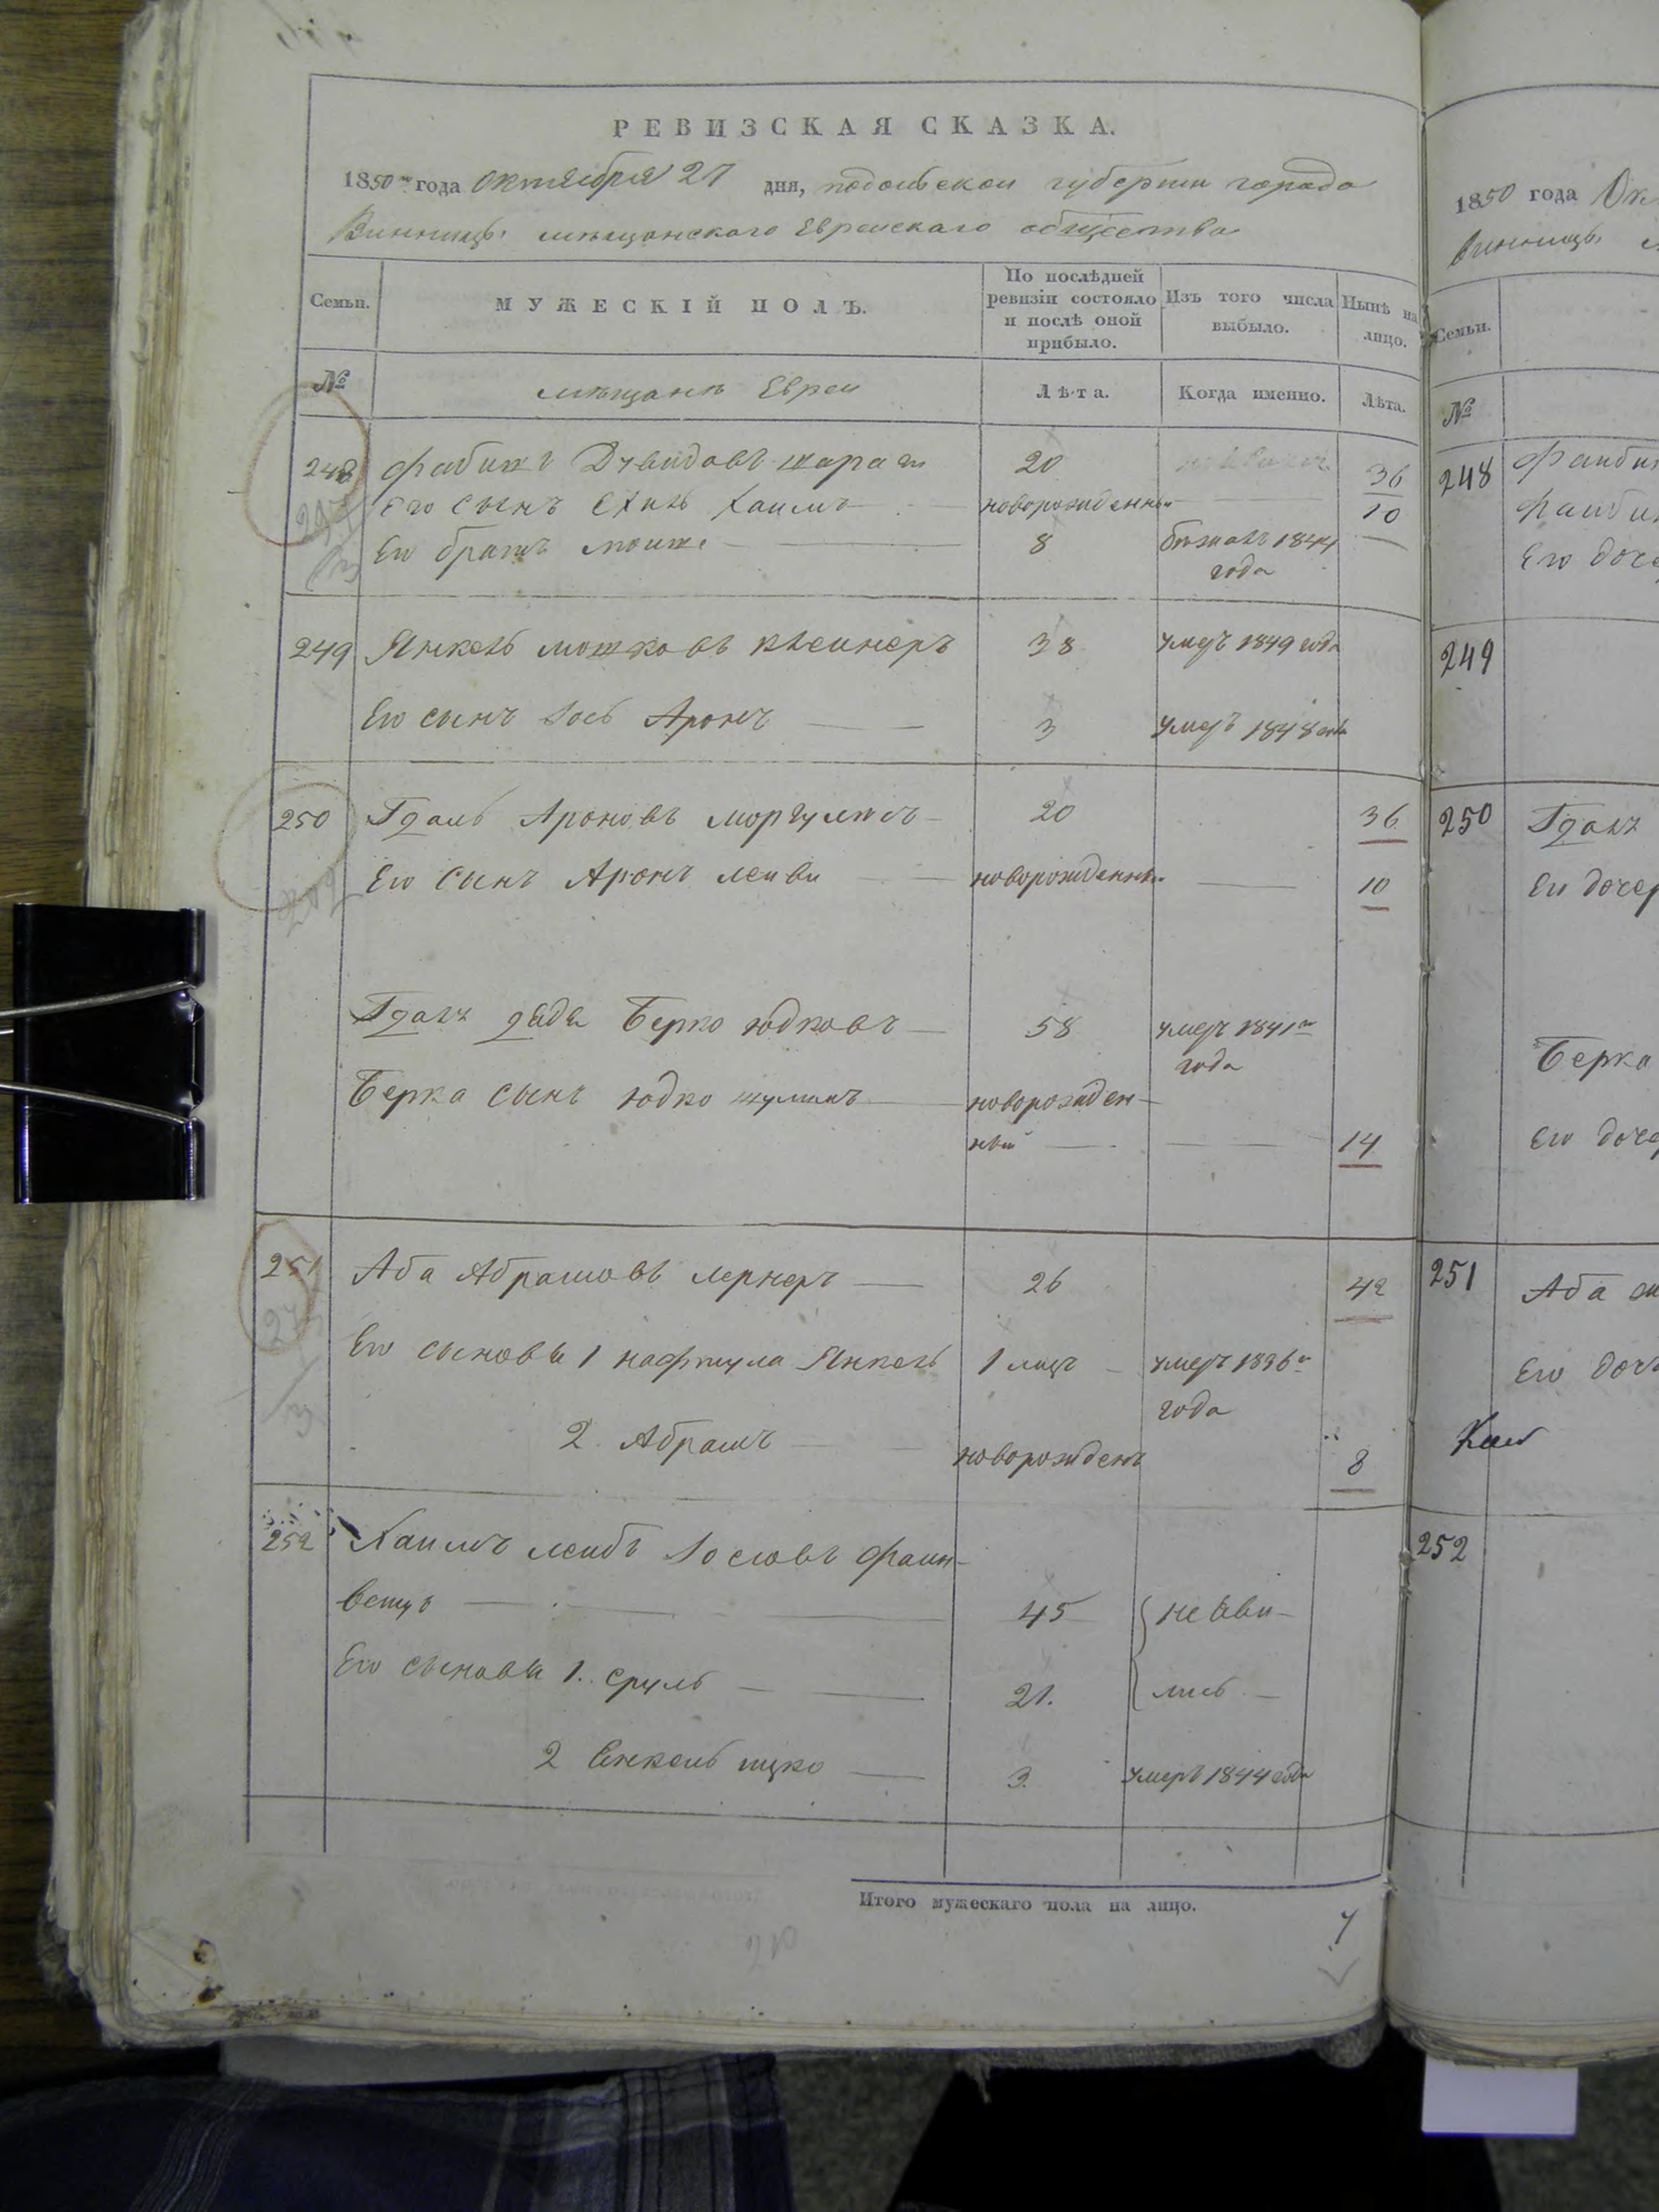 РЕВИЗСКАЯ СКАЗКА.
1850го года Октября 27 дня, подольской губернии города
Винницы мѣщанского Еврейского общества
Семьи. МУЖЕСКІЙ ПОЛЪ. По послѣдней ревизіи состояло и послѣ оной прибыло. Изъ того числа выбыло. Нынѣ на лицо.
№ мѣщанъ Евреи Лѣта. Когда именно. Лѣта.
248 Давидовъ 20 36
Его сынъ Хаимъ — новорожденный — 10
Его братъ — 8 бѣжалъ 1844 —
года
249 Янкель мошковъ клейнеръ 38 умеръ 1849 года
Его сынъ Іось Аронъ — 3 умеръ 1848 года
250 Гдаль Ароновъ моргулисъ — 20 36
Его сынъ Аронъ лейви — новорожденный — 10
Гдаля дядя Берко юдковъ — 58 умеръ 1841го
года
Берка сынъ юдко шулимъ — новорожден-
ный — — 14
251 Аба Абрамовъ лернеръ — 26 42
Его сыновья 1 нафтула Янкель 1 мѣц — умеръ 1836го
года
2. Абрамъ новорожденъ 8
252 Хаимъ лейбъ Іосіовъ фаин-
вецъ — 45 не Яви-
Его сыновья 1. Сруль — 21. лись —
2 Янкель ицко — 3. умеръ 1844 года
Итого мужескаго пола на лицо. 7
210
1850 года Ок
Винницы
Семьи.
№
248
Его доче
249
250 Гдаля
Его дочер
Берка
Его доче
251 Аба
Его доч
252